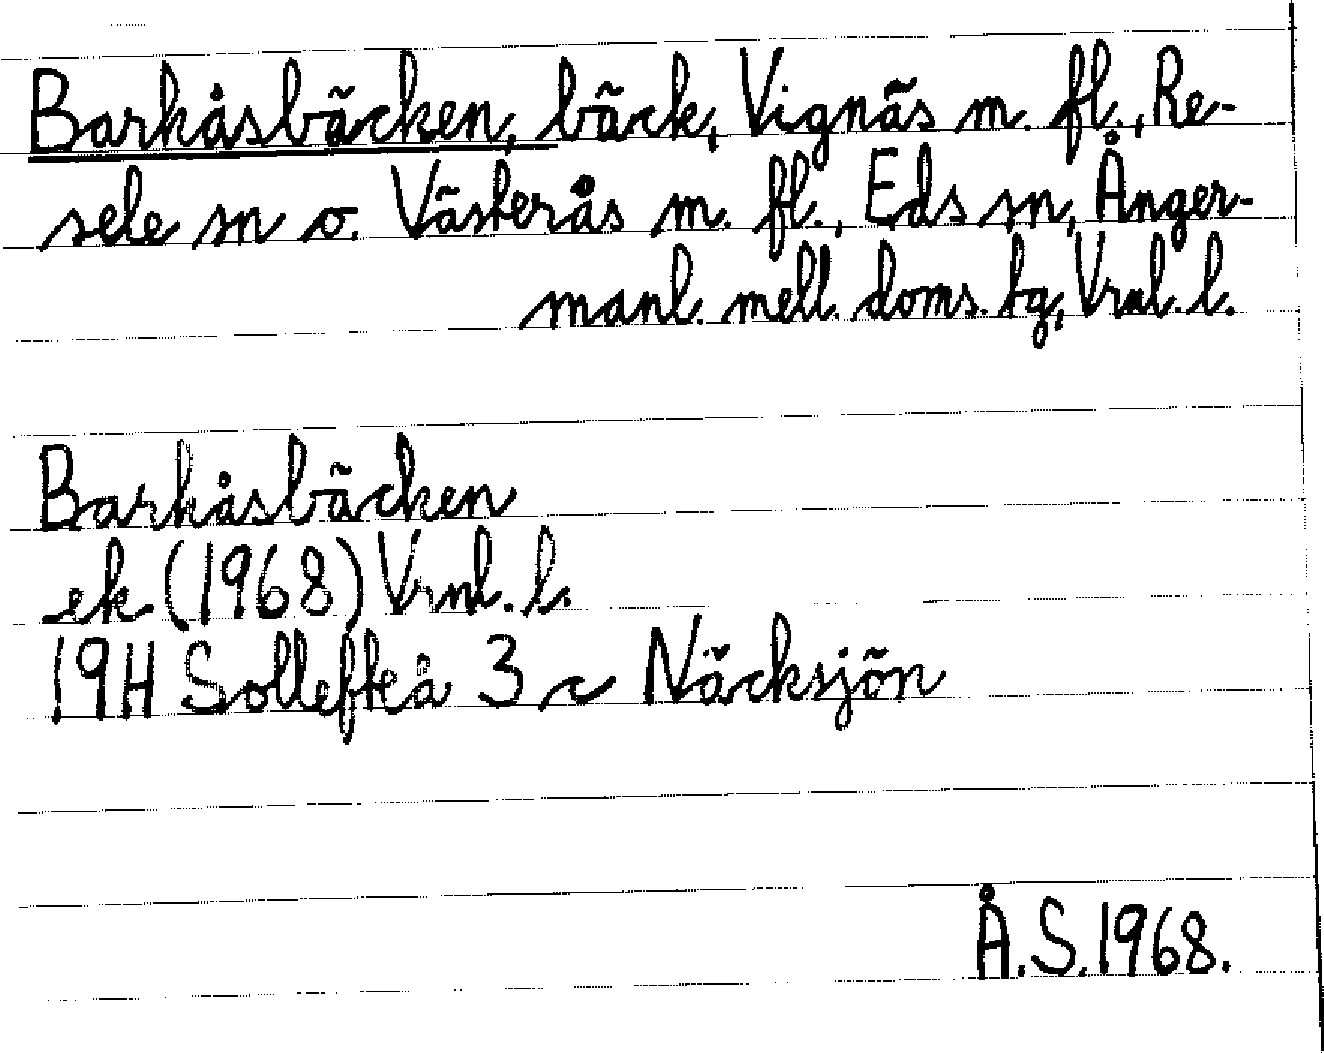 Barkåsbäcken, bäck, Vignäs m. fl., Re-
sele sn o. Västerås m. fl., Eds sn, Ånger-
manl. mell. doms. tg, Vrnl. l.
Barkåsbäcken
ek (1968) Vrnl. l.
19H Sollefteå 3 c Näcksjön
Å.S. 1968.